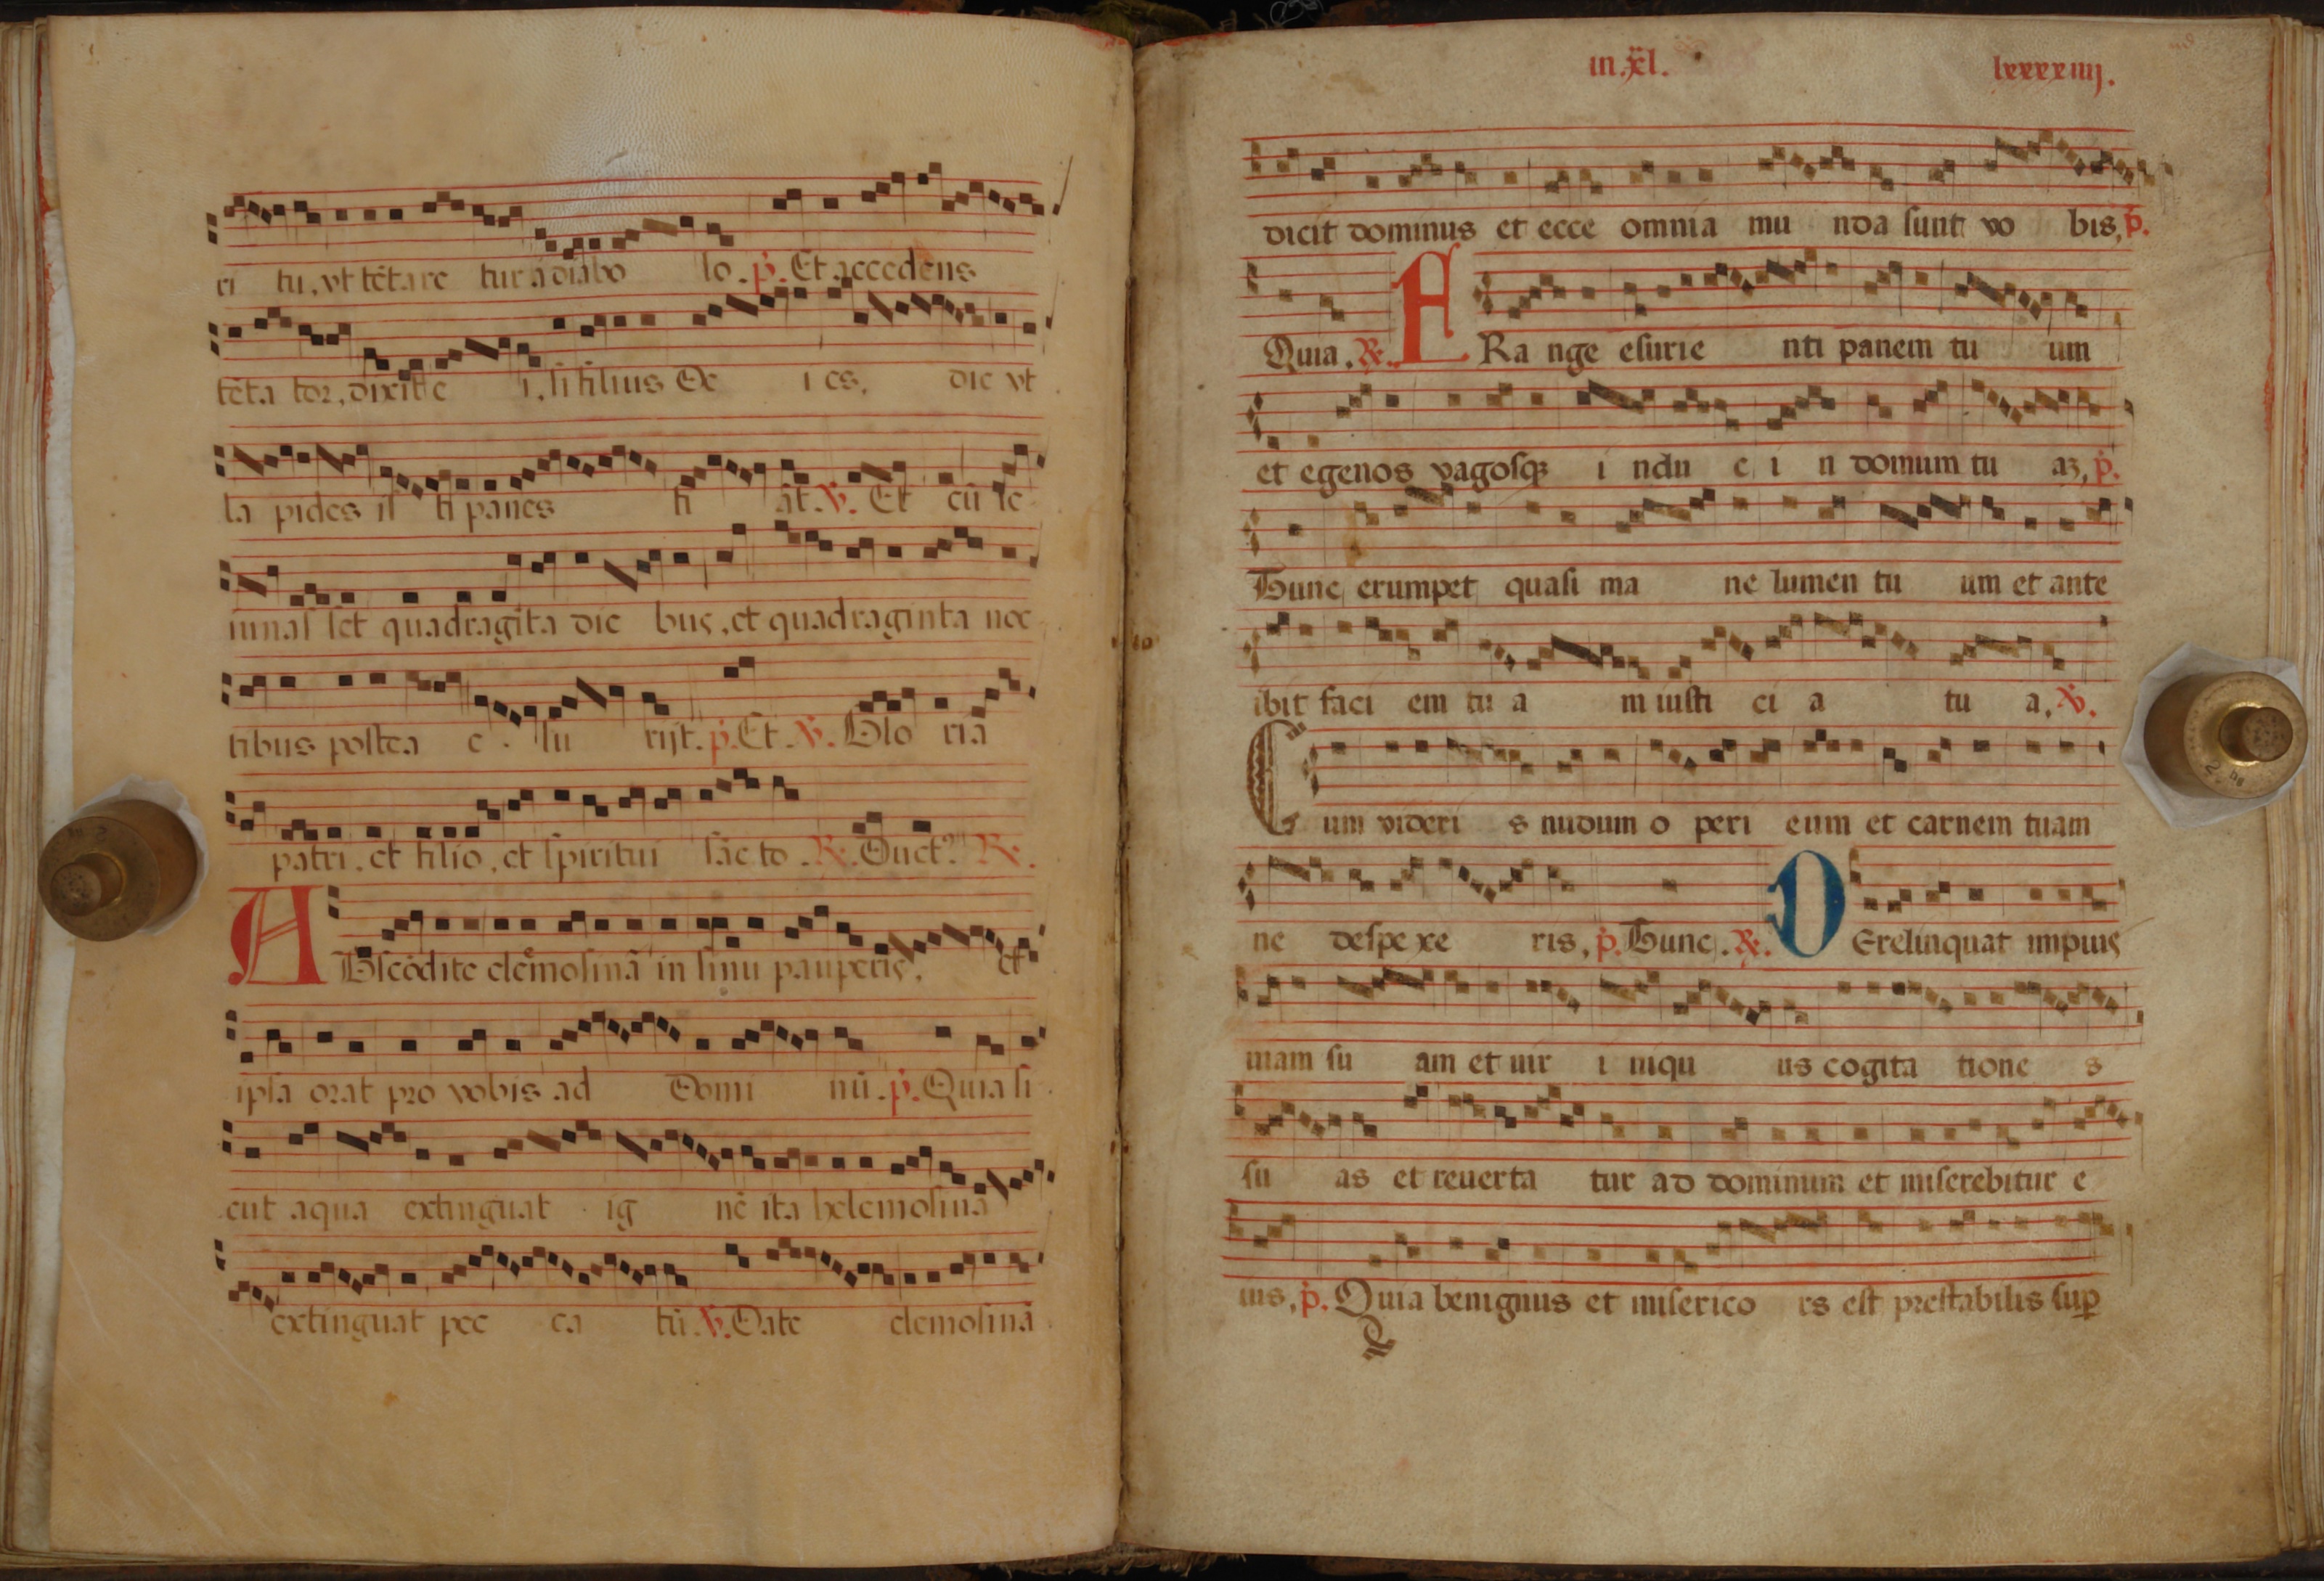 ri tu, vt tẽtare tur a diabo lo. p̃. Et accedens
tẽta tor, dixit e i, si filius De i es, dic vt
la pides is ti panes fi ãt. V. Et cũ ie
iunas set quadragĩta die bus, et quadraginta noc
tibus postea e su rijt. p̃. Et. V. Glo ria
patri, et filio, et spiritui sãc to. R. Duct⁹. R.
ABscõdite elemosinã in sinu pauperis, et
ipsa orat pro vobis ad Domi nũ. p̃. Quia si
cut aqua extinguat ig nẽ ita helemosina
extinguat pec ca tũ. V. Date elemosinã
in. xl.
lxxxxiiij.
dicit dominus et ecce omnia mu nda sunt vo bis, p̃.
Quia. R. FRa nge esurie nti panem tu um
et egenos vagosq; i ndu c i n domum tu aʒ, p̃.
Tunc erumpet quasi ma ne lumen tu um et ante
ibit faci em tu a m iusti ci a tu a, V.
Cum videri s nudum o peri eum et carnem tuam
ne despexe ris, p̃. Tunc. R. DErelinquat impius
uiam su am et uir i niqu us cogita tione s
su as et reuerta tur ad dominum et miserebitur e
ius, p̃. Quia benignus et miserico rs est prestabilis suꝑ